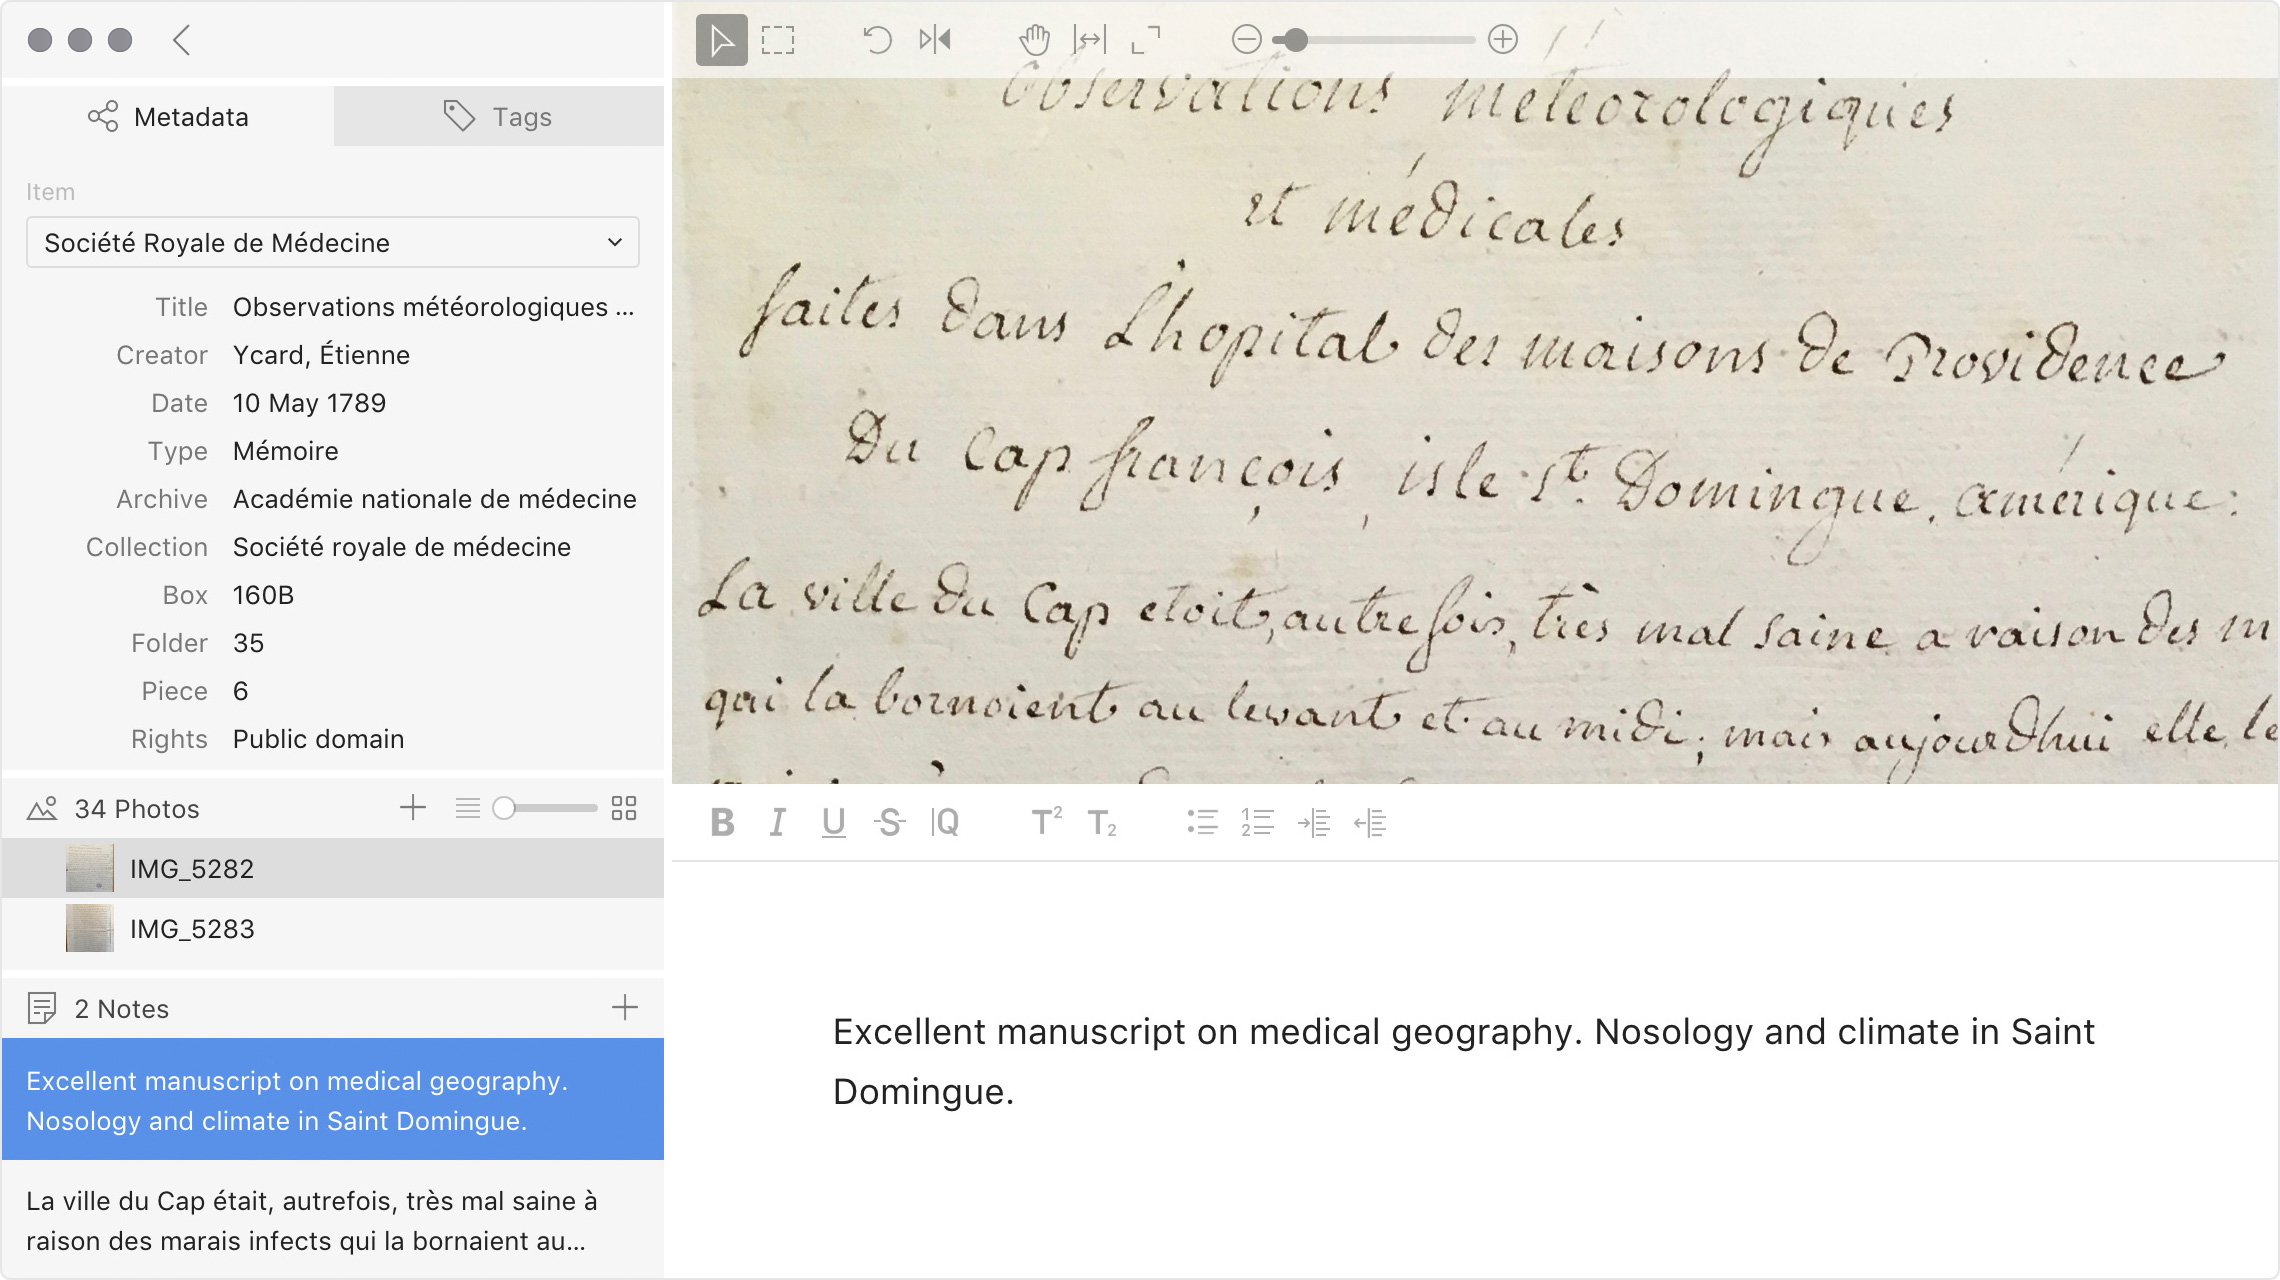 Metadata
Tags
Item
Société Royale de Médecine
Title Observations météorologiques ...
Creator Ycard, Étienne
Date 10 May 1789
Type Mémoire
Archive Académie nationale de médecine
Collection Société royale de médecine
Box 160B
Folder 35
Piece 6
Rights Public domain
34 Photos
IMG_5282
IMG_5283
2 Notes
Excellent manuscript on medical geography.
Nosology and climate in Saint Domingue.
La ville du Cap était, autrefois, très mal saine à
raison des marais infects qui la bornaient au...
Observations météorologiques
et médicales
faites dans L'hopital des maisons de Providence
Du Cap françois, isle St. Domingue, amérique.
La ville du Cap etoit, autrefois, très mal saine a raison des m
qui la bornoient au levant et au midi; mais aujourdhui elle le
B I U S Q T2 T2
Excellent manuscript on medical geography. Nosology and climate in Saint
Domingue.